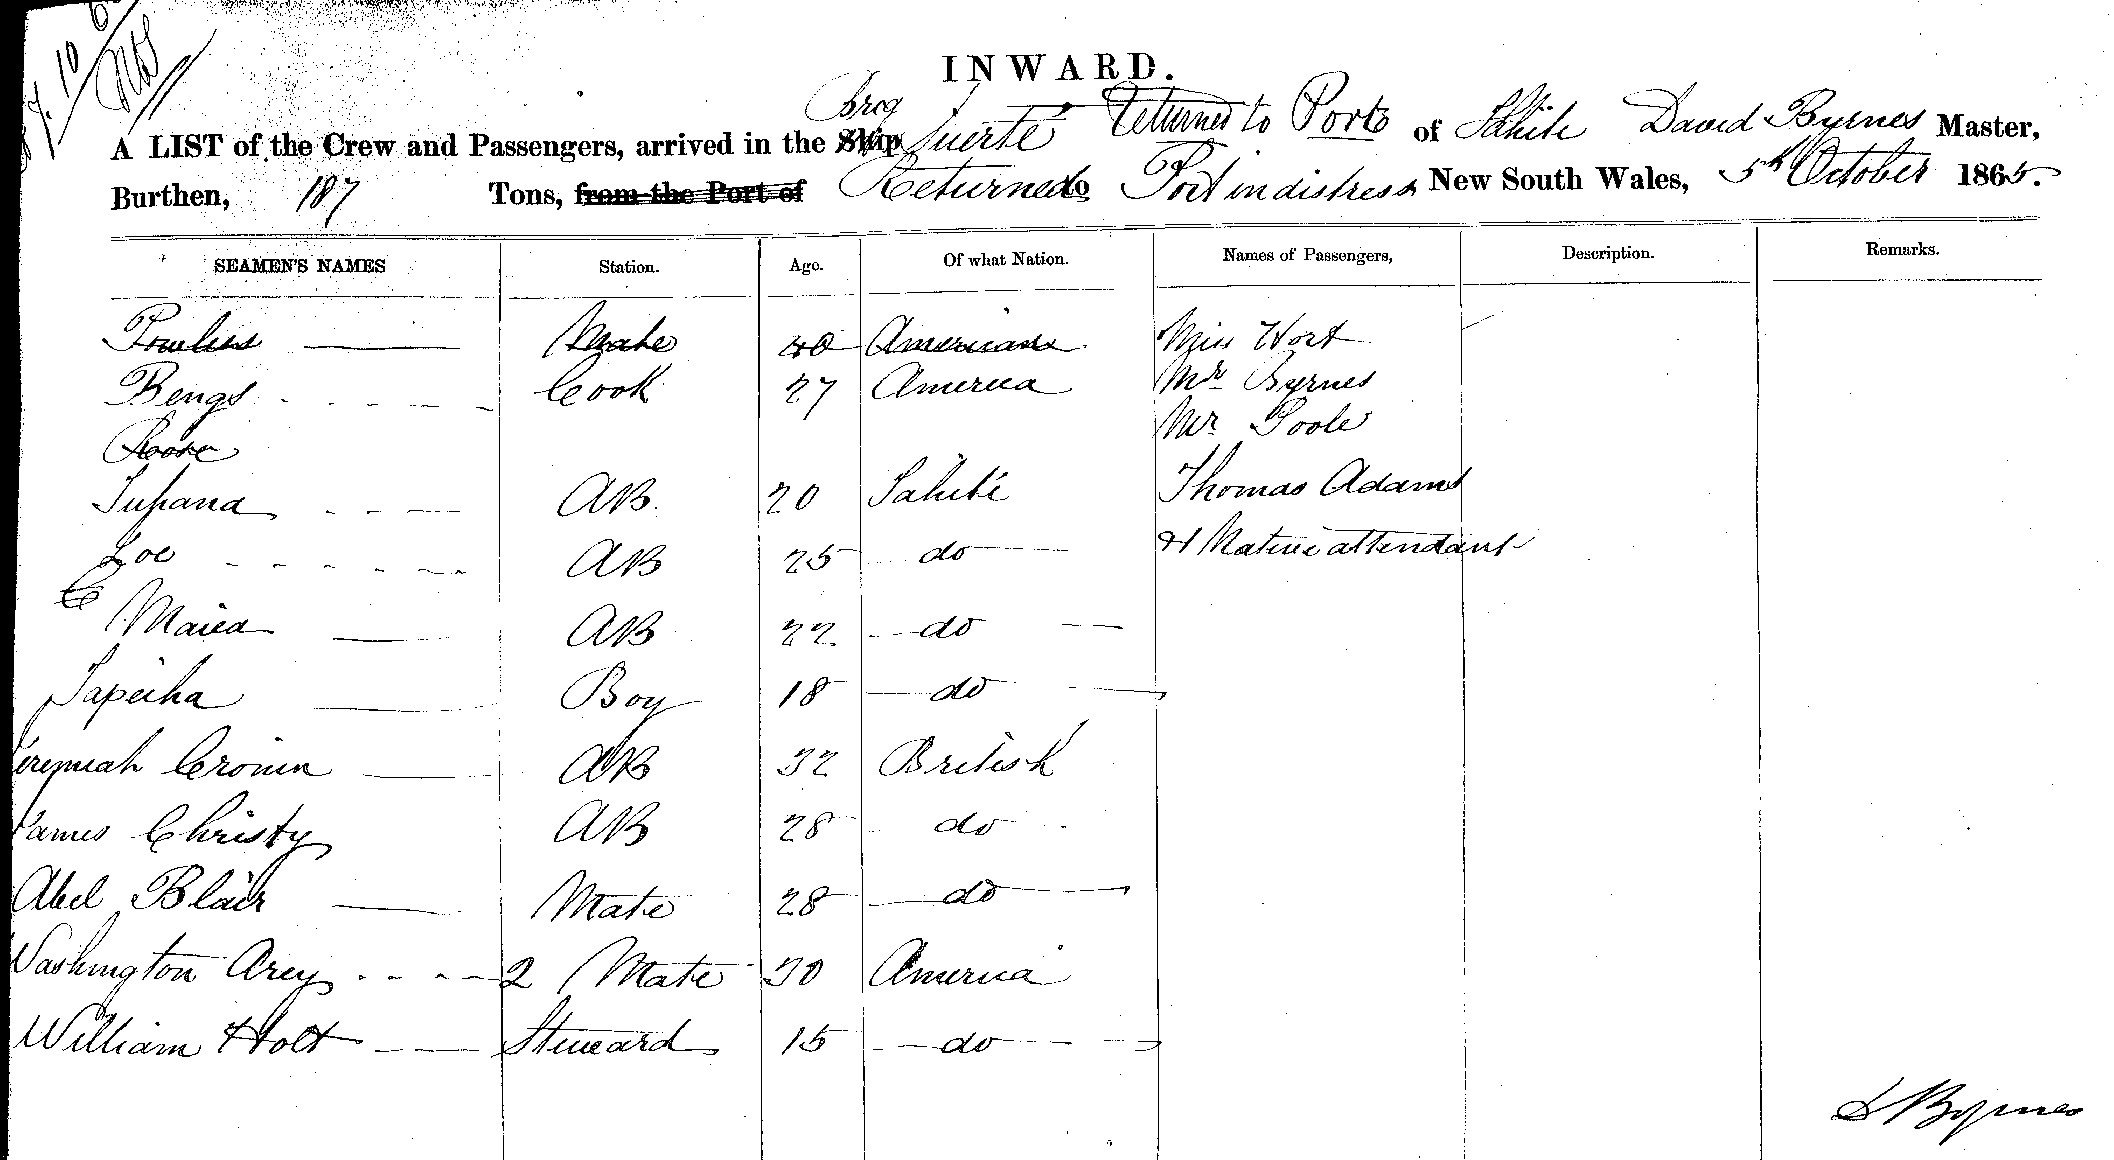 INWARD.
Brig
A LIST of the Crew and Passengers, arrived in the Ship Suerte Returned to Port of Tahiti David Byrnes Master,
Burthen, 187 Tons, from the Port of Returned to Port in distress New South Wales, 5th October 1865.
SEAMEN'S NAMES Station. Age. Of what Nation. Names of Passengers, Description. Remarks.
Mate 40 American Miss Hort
Bengs Cook 27 America Mrs Byrnes
Mr Poole
Tupana AB. 20 Tahiti Thomas Adams
Zoe AB 25 do & Native attendant
Maiea AB 22 do
Tapeiha Boy 18 do
Jeremiah Cronin AB 32 British
James Christy AB 28 do
Abel Blair Mate 28 do
Washington Arey 2 Mate 30 America
William Holt Steward 15 do
D Byrnes